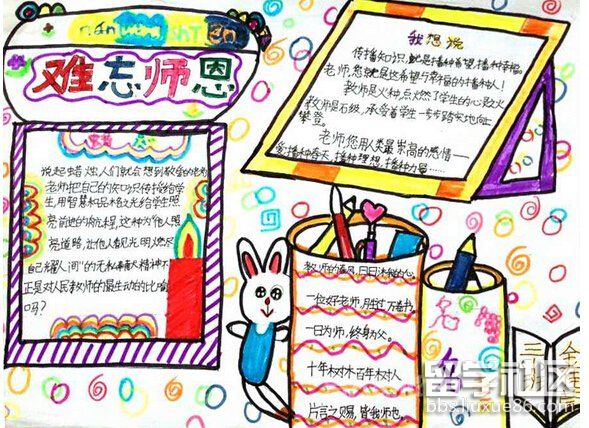 难忘师恩
我想说
传播知识,就是播种希望,播种幸福。
老师,您就是这希望与幸福的播种人!
教师是火种,点燃了学生的心灵之火
教师是石级,承受着学生一步步踏实地向上
攀登。
老师,您用人类最崇高的感情——
爱,播种春天,播种理想,播种力量……
说起蜡烛,人们就会想到
老师把自己的知识传授给学
生,用智慧和品格之光给学生照
亮前进的旅程,这种为他人照
亮道路,让他人看见光明,燃尽
自己耀人间"的无私奉献精神不
正是对人民教师的最生动的比喻
吗?
教师的春风,日日沐我心。
一位好老师,胜过万卷书。
一日为师,终身为父。
十年树木百年树人
片言之赐,皆我师也。
名
名
留学社区
bbs.liuxue86.com